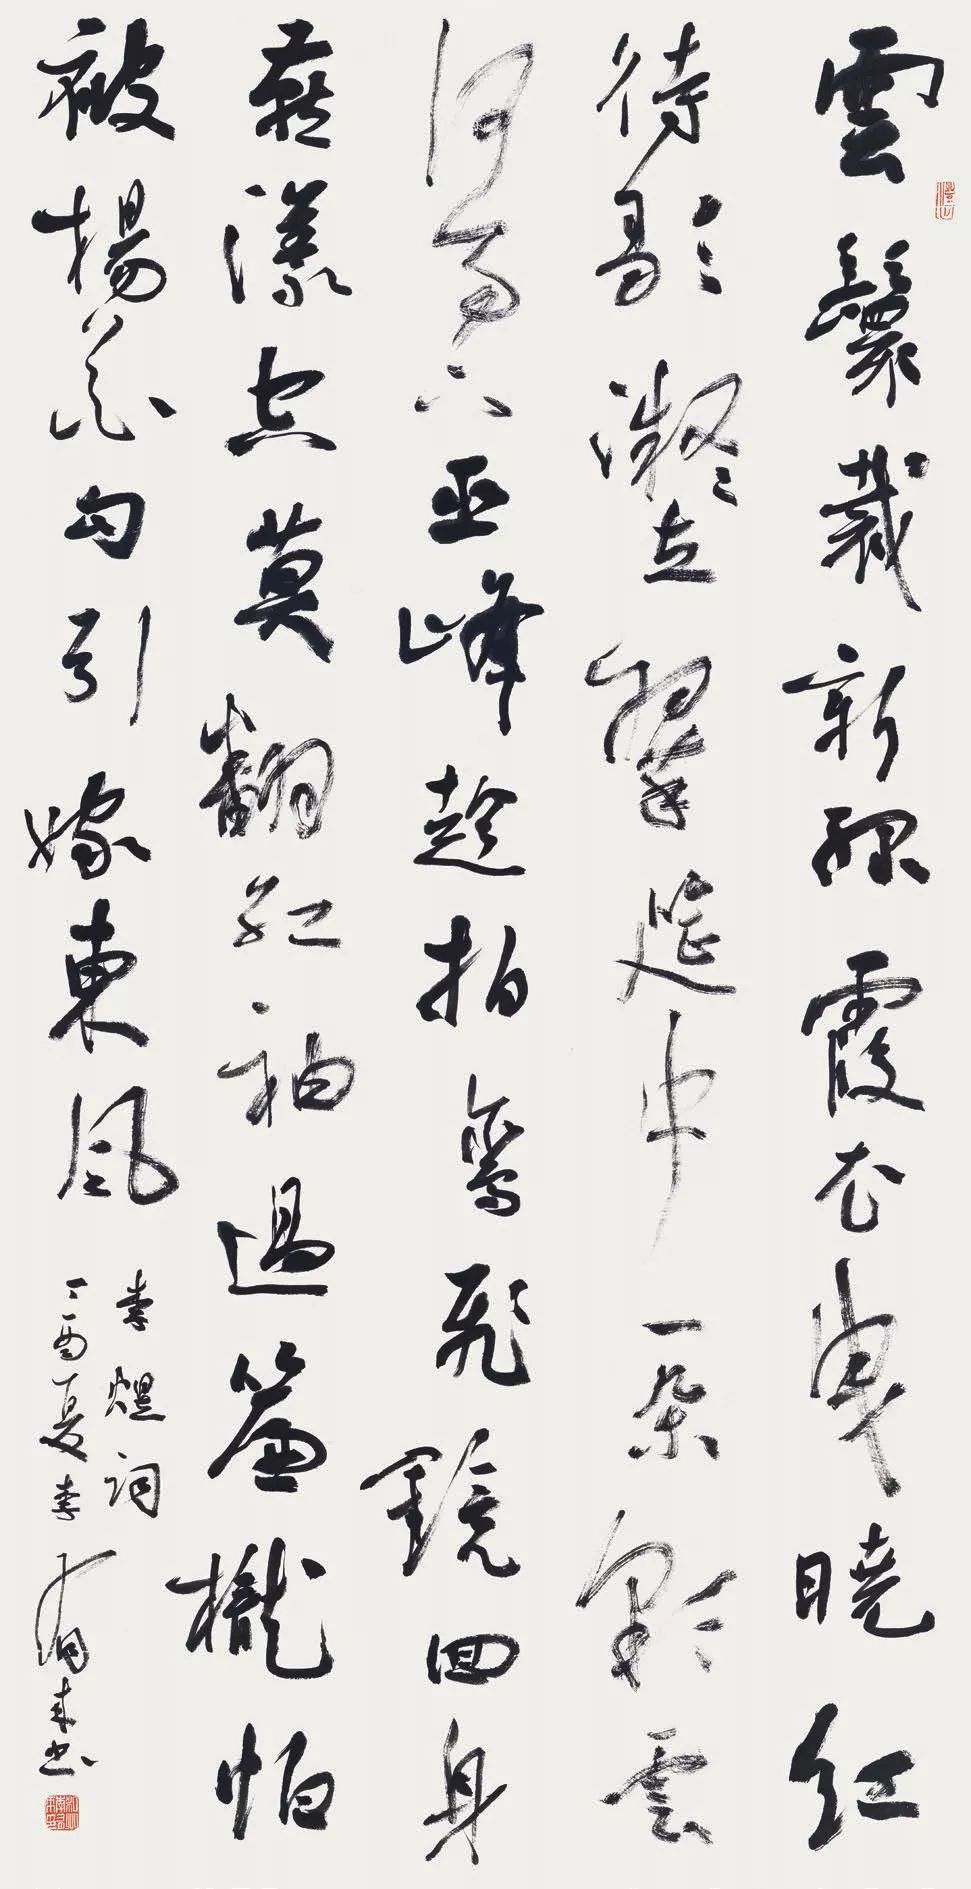 雲鬟裁新綠霞衣曳曉紅
待歌凝立翠筵中一朵彩雲
何事下巫峰趁拍鸞飛鏡回身
燕漾空莫翻紅袖過簾櫳怕
被楊花勾引嫁東風
李煜詞
丁酉夏李有来书